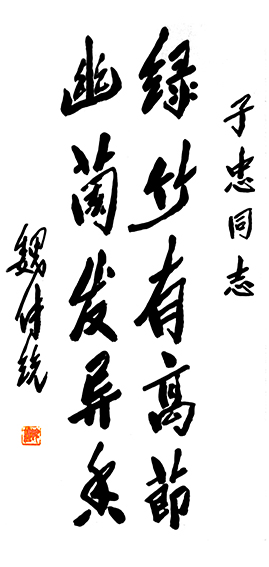 子忠同志
绿竹有高節
幽蘭发异香
魏传统